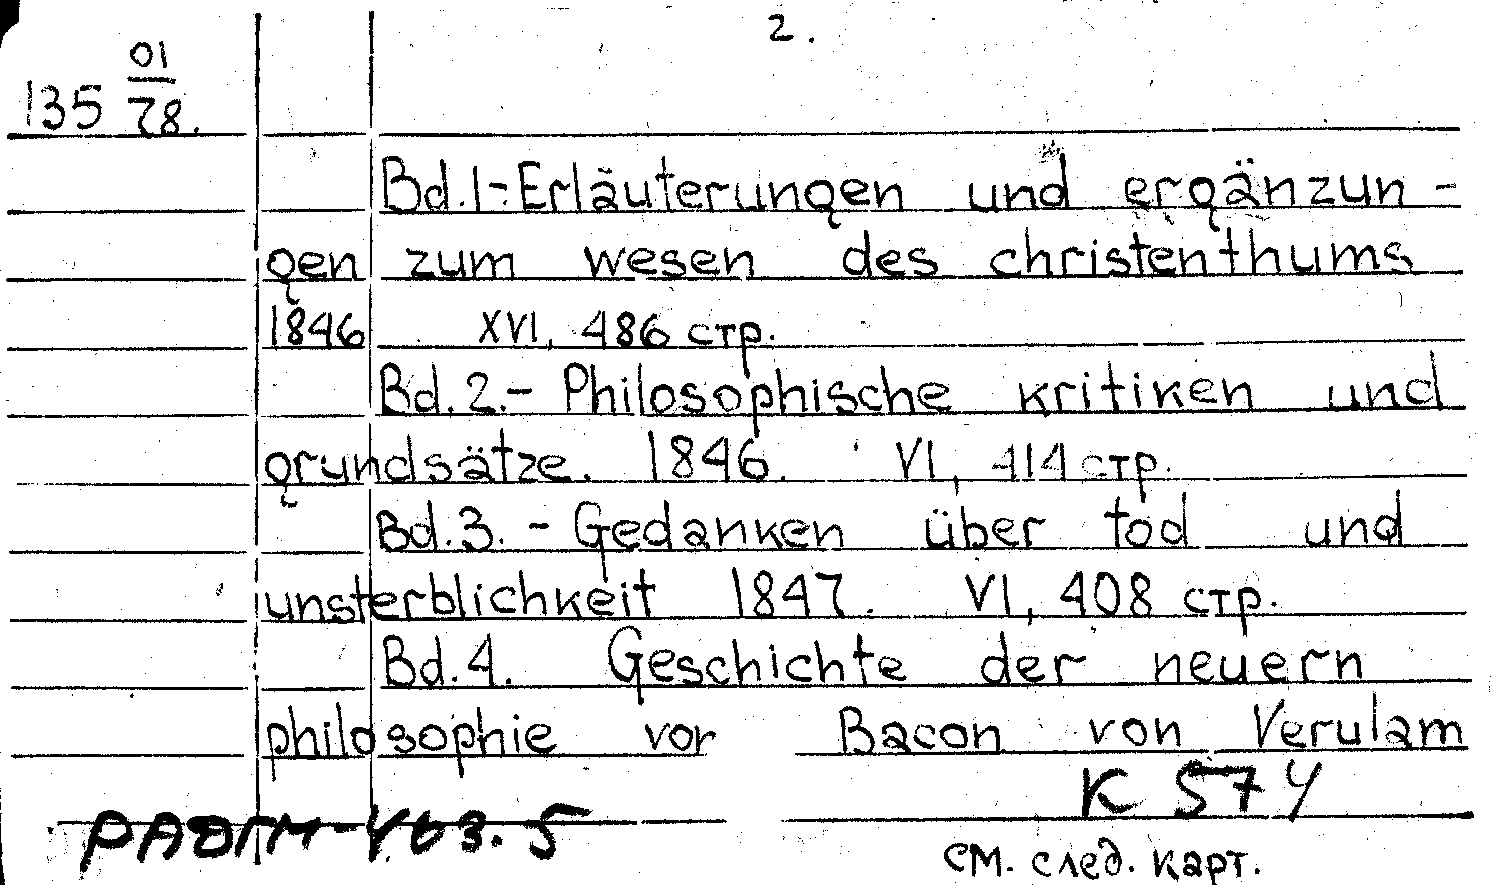 2.
01
135 78.
Bd.1-Erläuterungen und ergänzun-
gen zum wesen des christenthums
1846 XVI, 486 стр.
Bd.2.- Philosophische kritiken und
grundsätze. 1846. VI, 414 стр.
Bd.3.- Gedanken über tod und
unsterblichkeit 1847. VI, 408 стр.
Bd.4. Geschichte der neuern
philosophie vor Bacon von Verulam
К 574
см. след. карт.